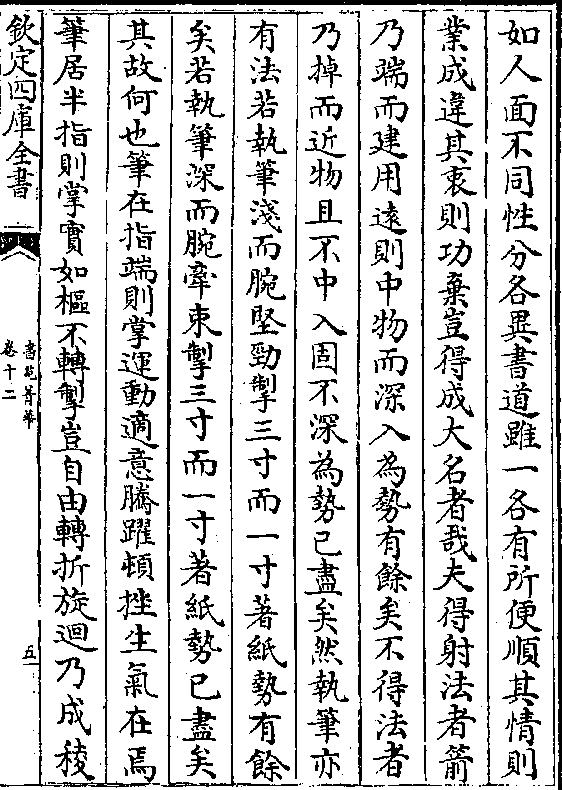 如人面不同性分各異書道雖一各有所便順其情則
業成違其衷則功棄豈得成大名者哉夫得射法者箭
乃端而建用遠則中物而深入為勢有餘矣不得法者
乃掉而近物且不中入固不深為勢已盡矣然執筆亦
有法若執筆淺而腕堅勁掣三寸而一寸著紙勢有餘
矣若執筆深而腕牽束掣三寸而一寸著紙勢已盡矣
其故何也筆在指端則掌運動適意騰躍頓挫生氣在焉
筆居半指則掌實如樞不轉掣豈自由轉折旋迴乃成稜
欽定四庫全書
書苑菁華
卷十二
五